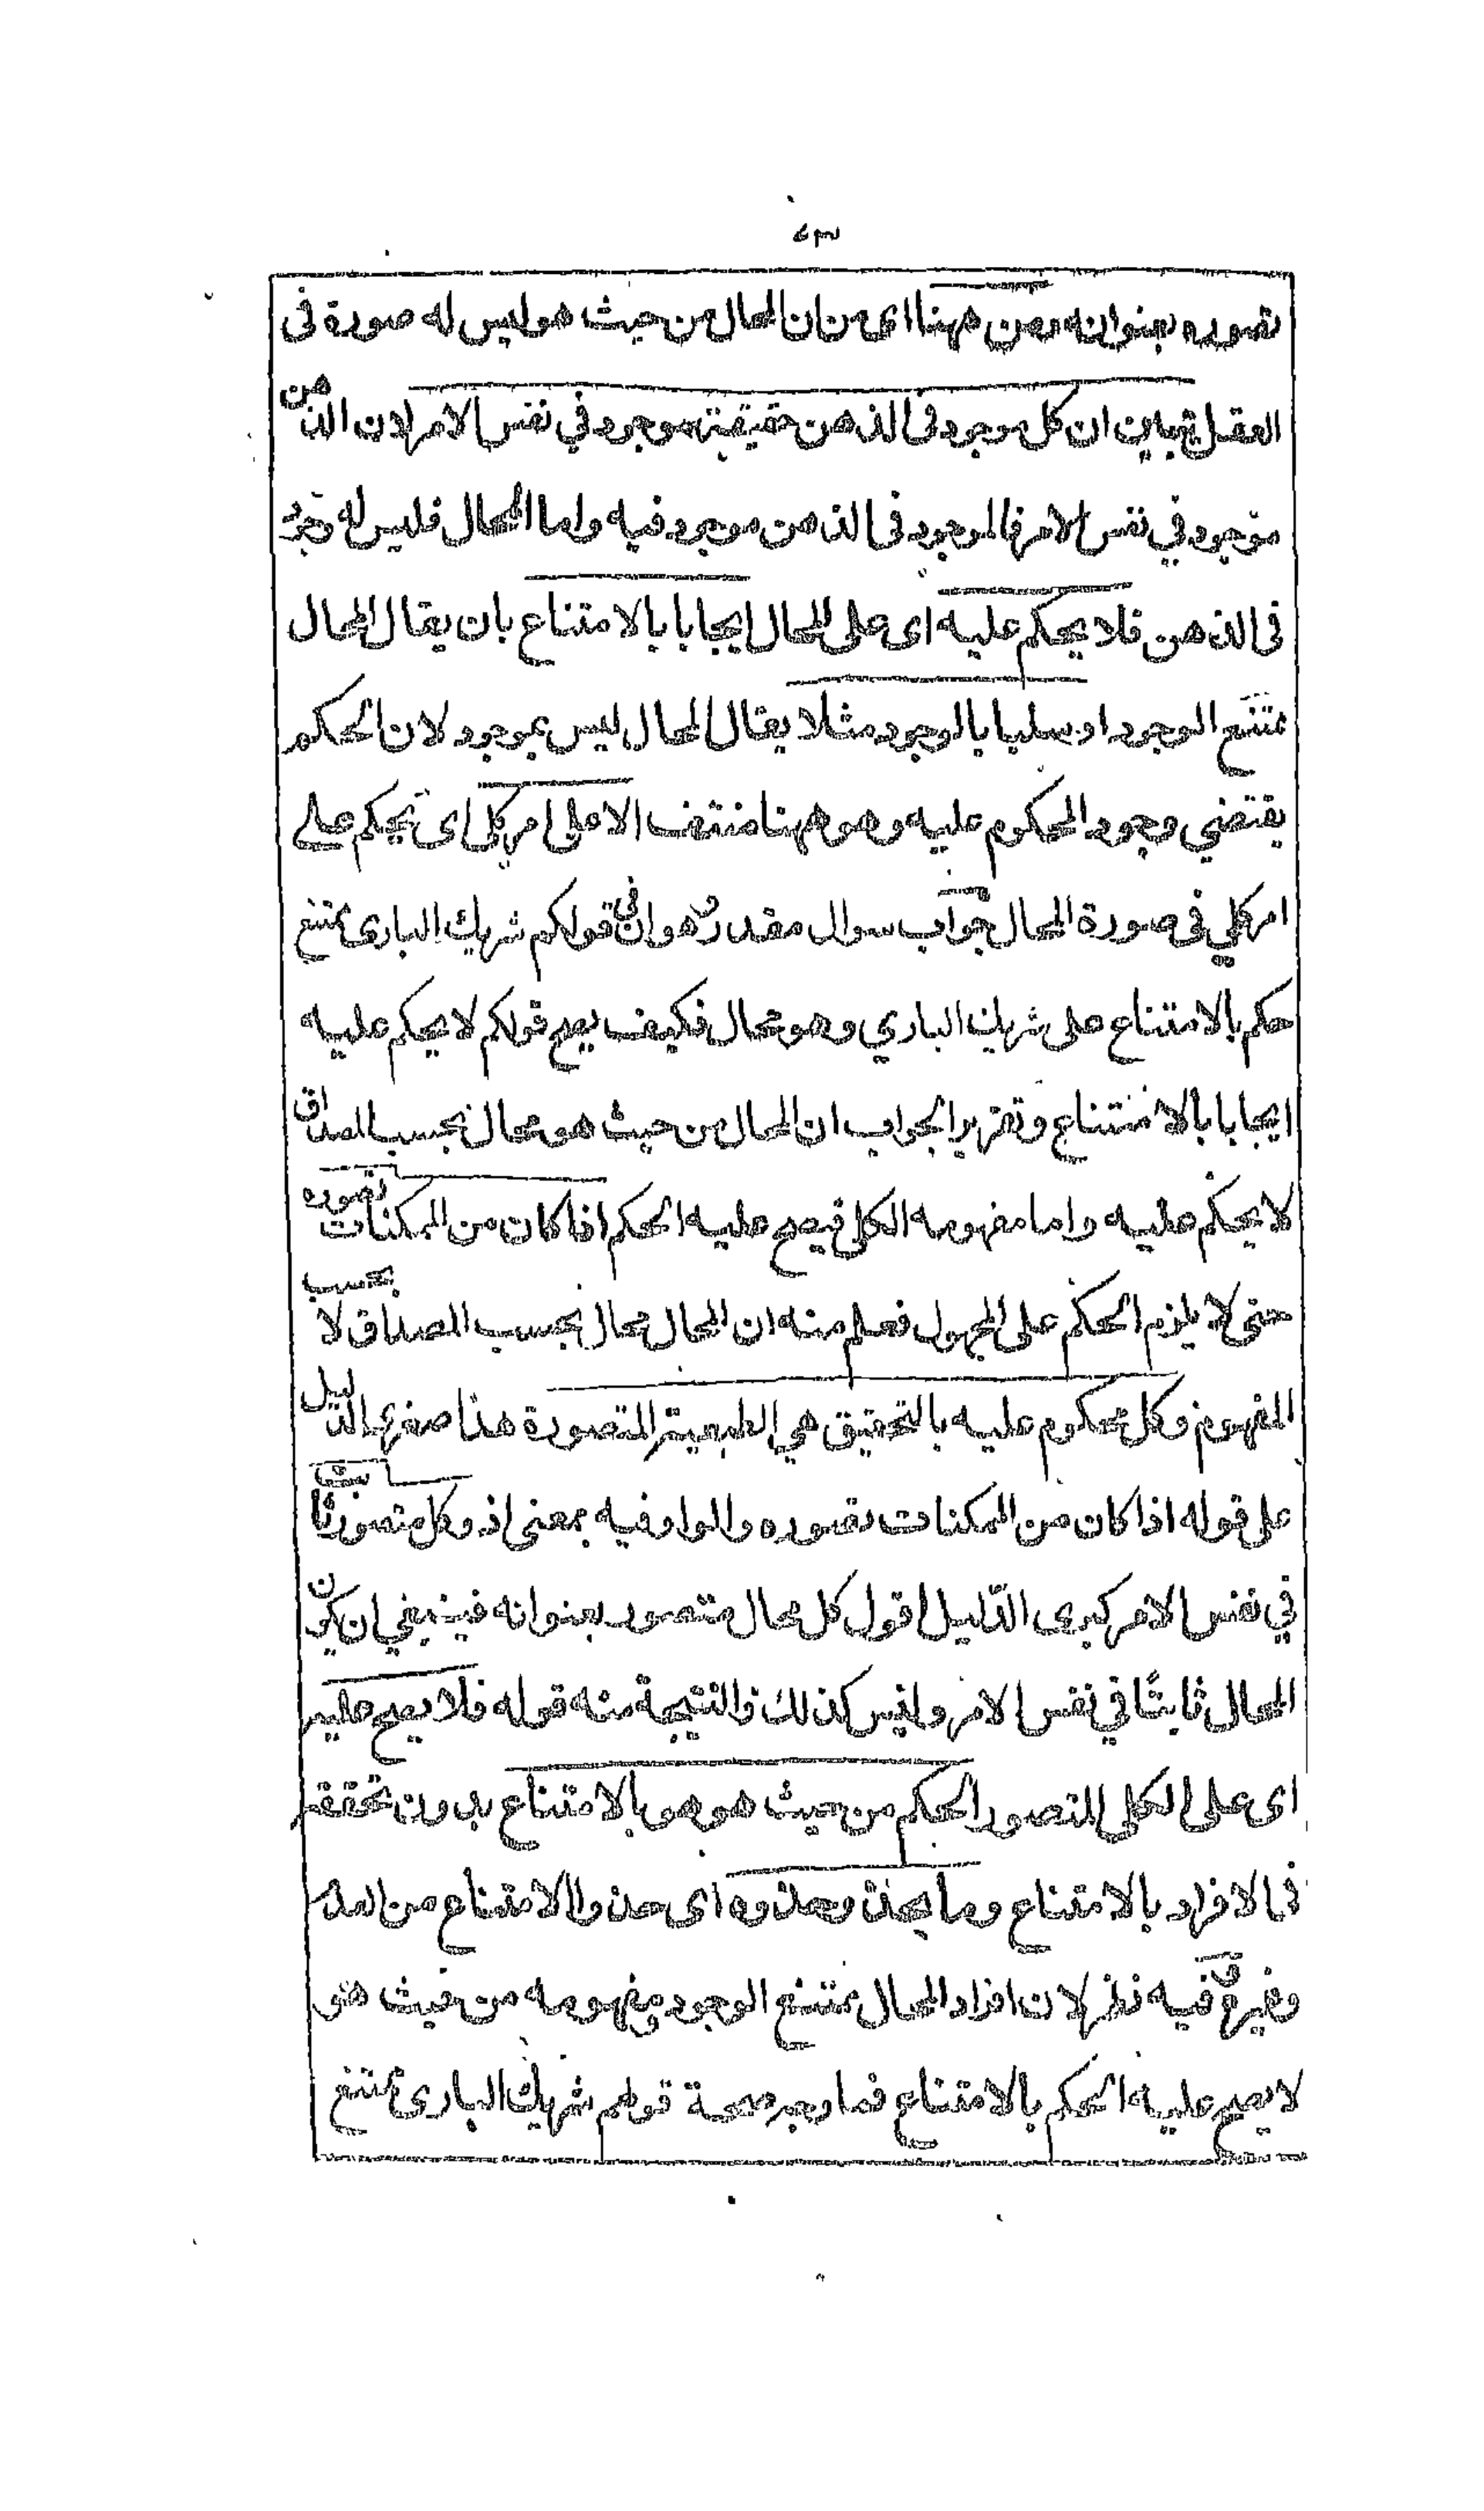 تصوره بعنوانه ومن ههنا اى من ان المحال من حيث هو ليس له صورة فى
العقل يتبين ان كل موجود فى الذهن حقيقة موجود في نفس الامر لان الذهن
موجود في نفس الامر فالموجود فى الذهن موجود فيه واما المحال فليس له وجود
فى الذهن فلا يحكم عليه اى على المحال ايجابا بالامتناع بان يقال المحال
ممتنع الوجود او سلبا بالوجود مثلا يقال المحال ليس بموجود لان الحكم
يقتضي وجود المحكوم عليه وهو ههنا منتف الا على امر كلي اى يحكم على
امر كلي فى صورة المحال جواب سوال مقدر وهو ان في قولكم شريك البارى ممتنع
حكم بالامتناع على شريك الباري وهو محال فكيف يصح قولكم لا يحكم عليه
ايجابا بالامتناع وتقرير الجواب ان المحال من حيث هو محال بحسب المصداق
لا يحكم عليه واما مفهومه الكلى فيصح عليه الحكم اذا كان من الممكنات تصوره
حتى لا يلزم الحكم على المجهول فعلم منه ان المحال محال بحسب المصداق لا بحسب
المفهوم وكل محكوم عليه بالتحقيق هي الطبعية المتصورة هذا صغرى الدليل
على قوله اذا كان من الممكنات تصوره والواو فيه بمعنى اذ وكل متصور ثابت
في نفس الامر كبرى الدّليل اقول كل محال متصور بعنوانه فينبغي ان يكون
المحال ثابتًا في نفس الامر وليس كذلك والنتيجة منه قوله فلا يصح عليه
اى على الكلى المتصور الحكم من حيث هو هو بالامتناع بدون تحققه
فى الافراد بالامتناع وما يحذو حذوه اى حذو الامتناع من السلب
وغيره فيه نظر لان افراد المحال ممتنع الوجود ومفهومه من حيث هو
لا يصح عليه الحكم بالامتناع فما وجه صحة قولهم شريك البارى ممتنع